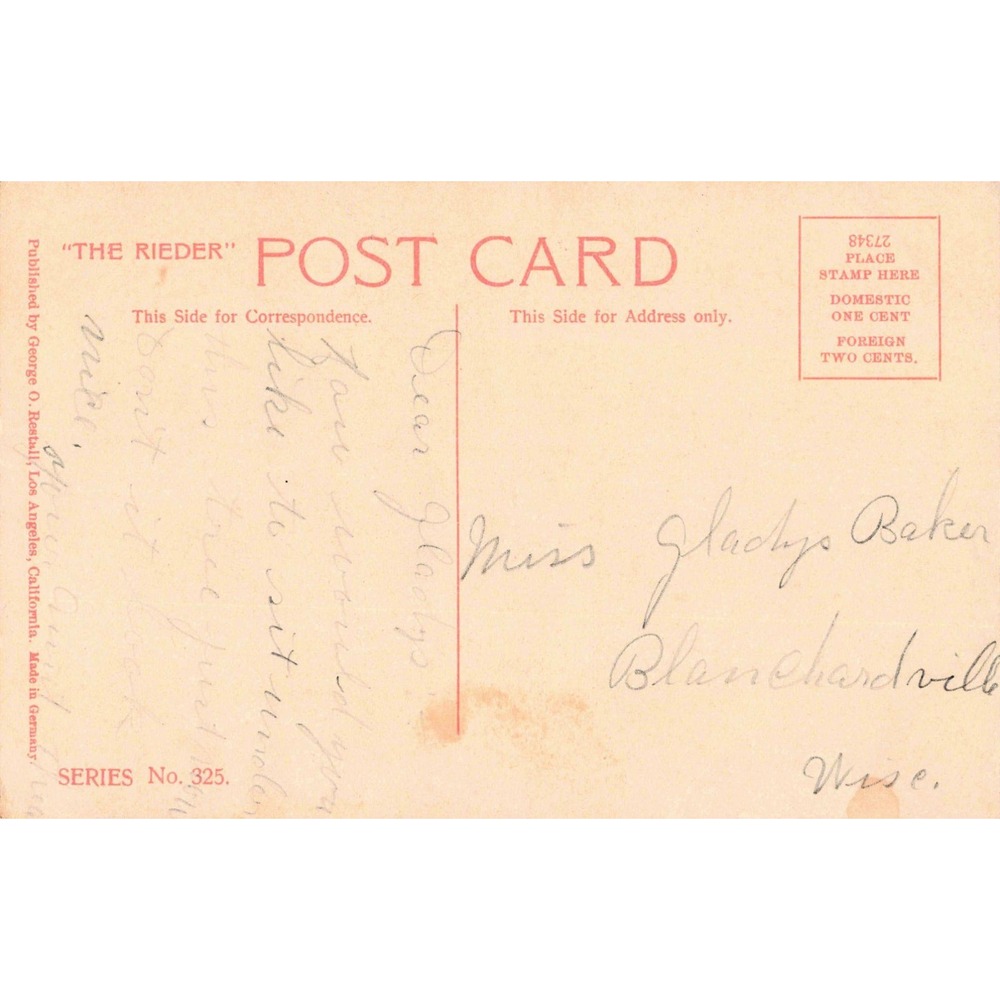 "THE RIEDER" POST CARD
This Side for Correspondence.
This Side for Address only.
27348
PLACE
STAMP HERE
DOMESTIC
ONE CENT
FOREIGN
TWO CENTS.
Dear Gladys:
How would you
like to sit under
this tree just
Don't it look
nice.
Your Aunt
Miss Gladys Baker
Blanchardville
Wisc.
Published by George O. Restall, Los Angeles, California. Made in Germany.
SERIES No. 325.